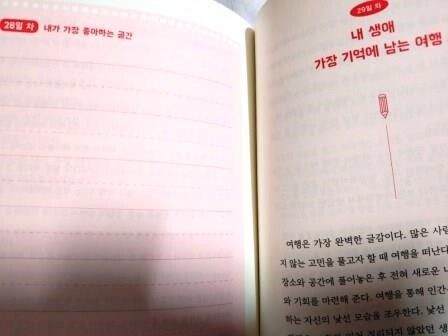 28일 차 내가 가장 좋아하는 공간
29일 차
내 생애
가장 기억에 남는 여행
여행은 가장 완벽한 글감이다. 많은
지 않는 고민을 풀고자 할 때 여행을 떠난다
장소와 공간에 풀어놓은 후 전혀 새로운
와 기회를 마련해 준다. 여행을 통해 인간
하는 자신의 낯선 모습을 조우한다. 낯선